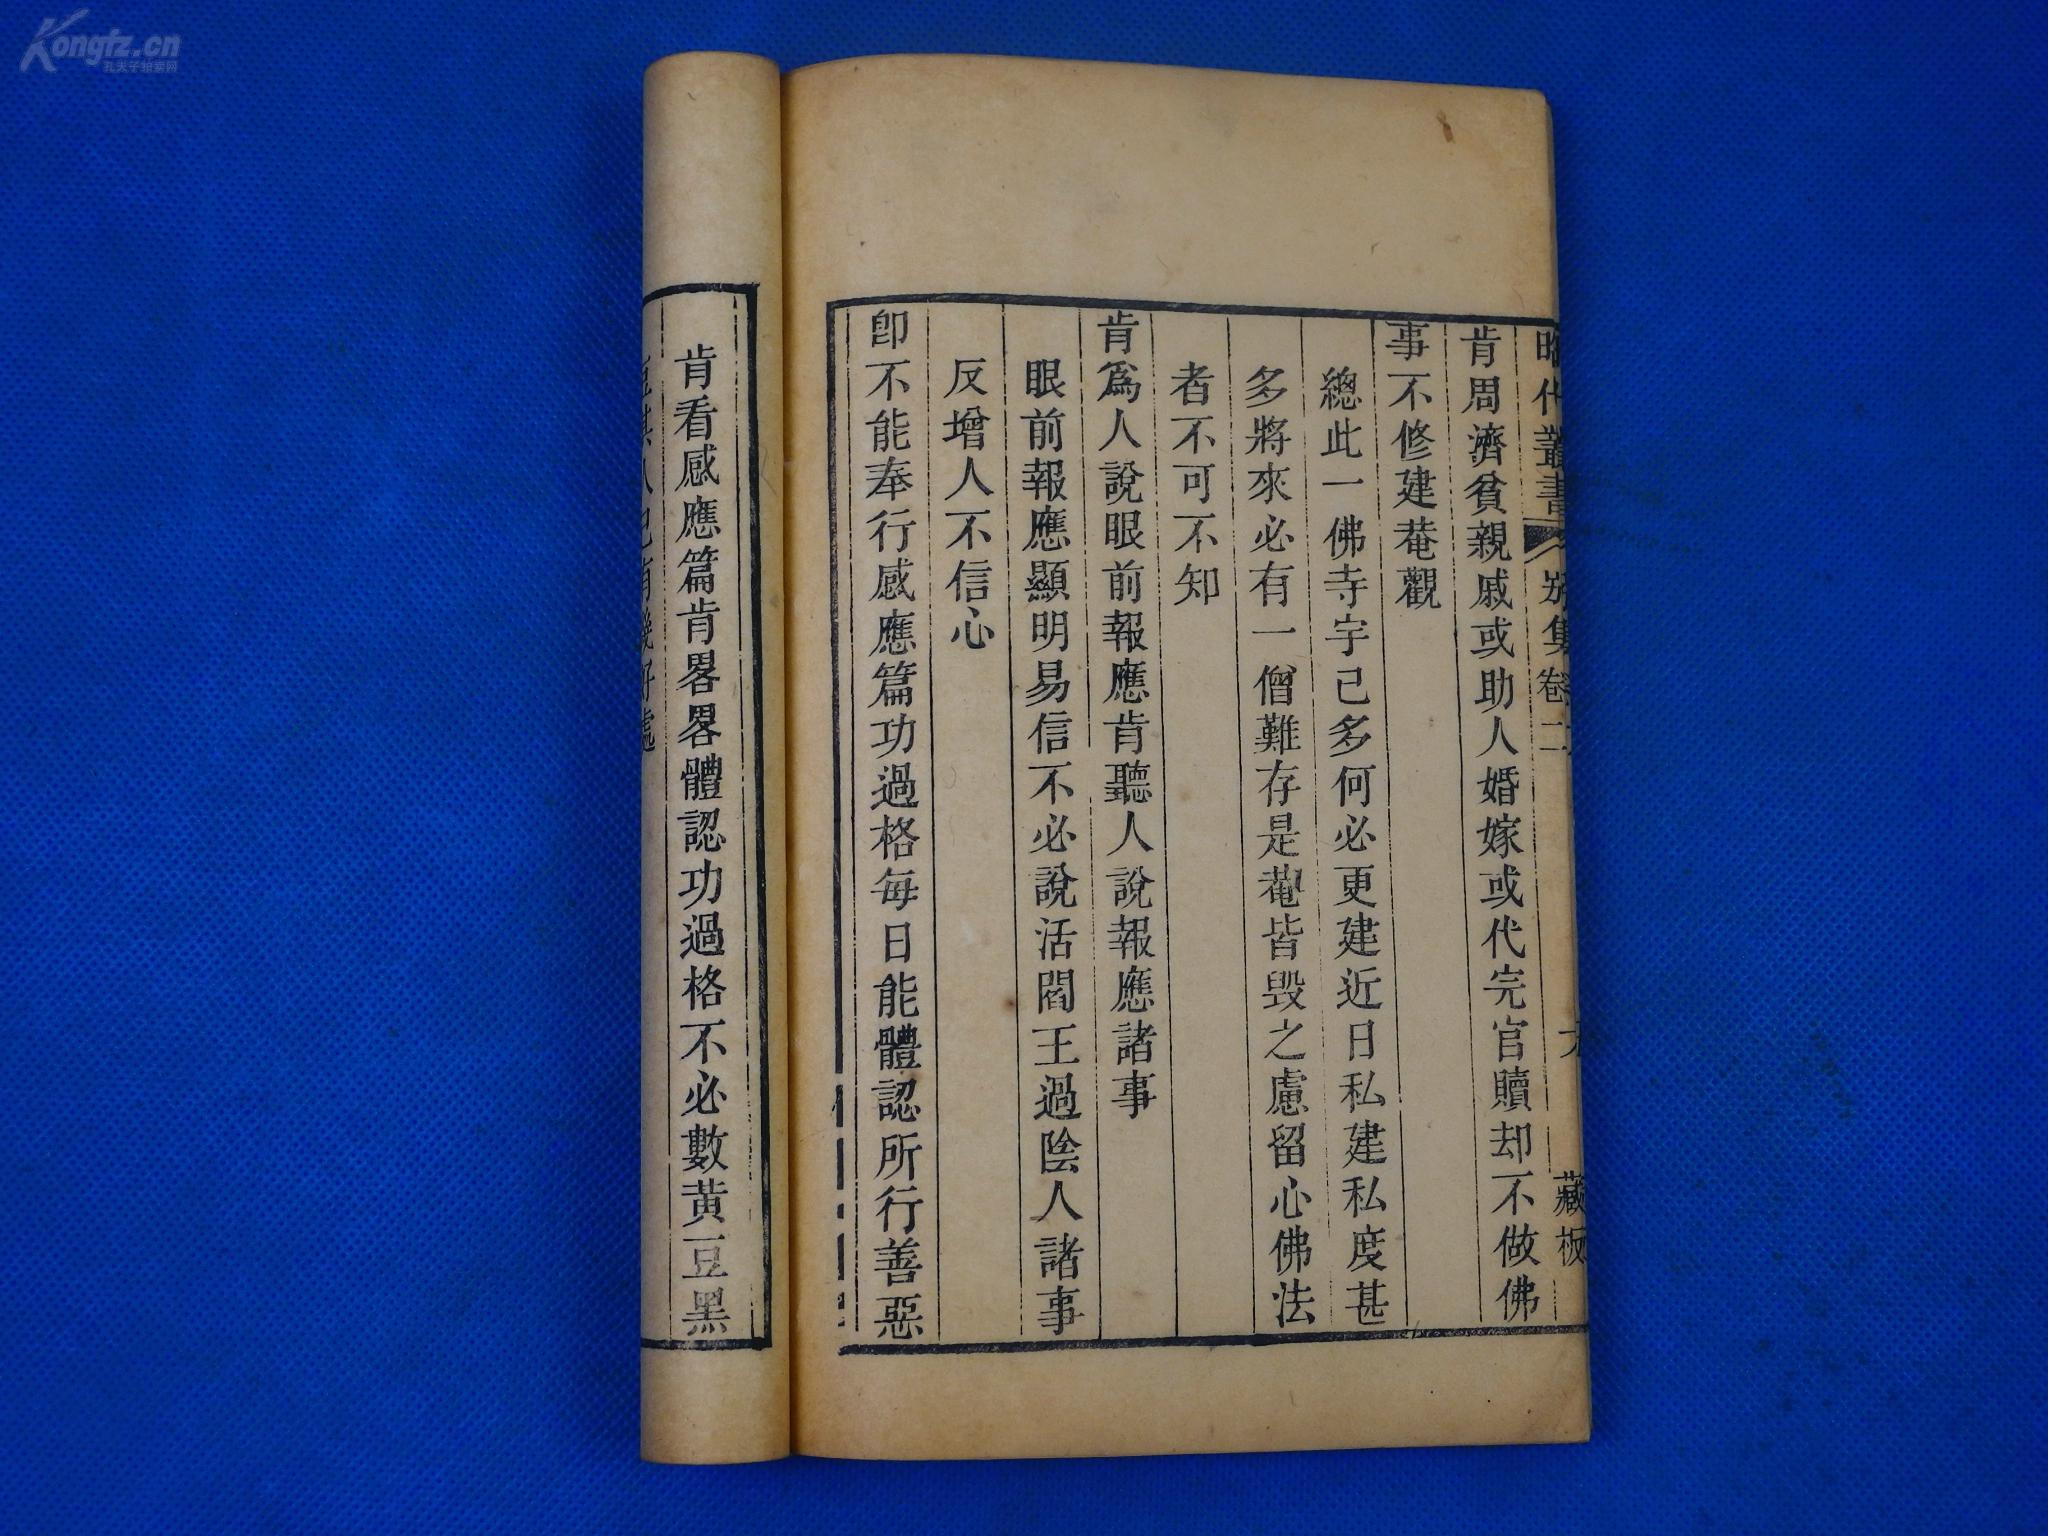 Kongfz.cn
孔夫子拍卖网
昭代叢書 別集 卷二 藏板
肯周濟貧親戚或助人婚嫁或代完官贖却不做佛
事不修建菴觀
總此一佛寺宇已多何必更建近日私建私度甚
多將來必有一僧難存是菴皆毀之慮留心佛法
者不可不知
肯爲人說眼前報應肯聽人說報應諸事
眼前報應顯明易信不必說活閻王過陰人諸事
反增人不信心
卽不能奉行感應篇功過格每日能體認所行善惡
肯看感應篇肯畧畧體認功過格不必數黃豆黑
豆其人已有幾好處